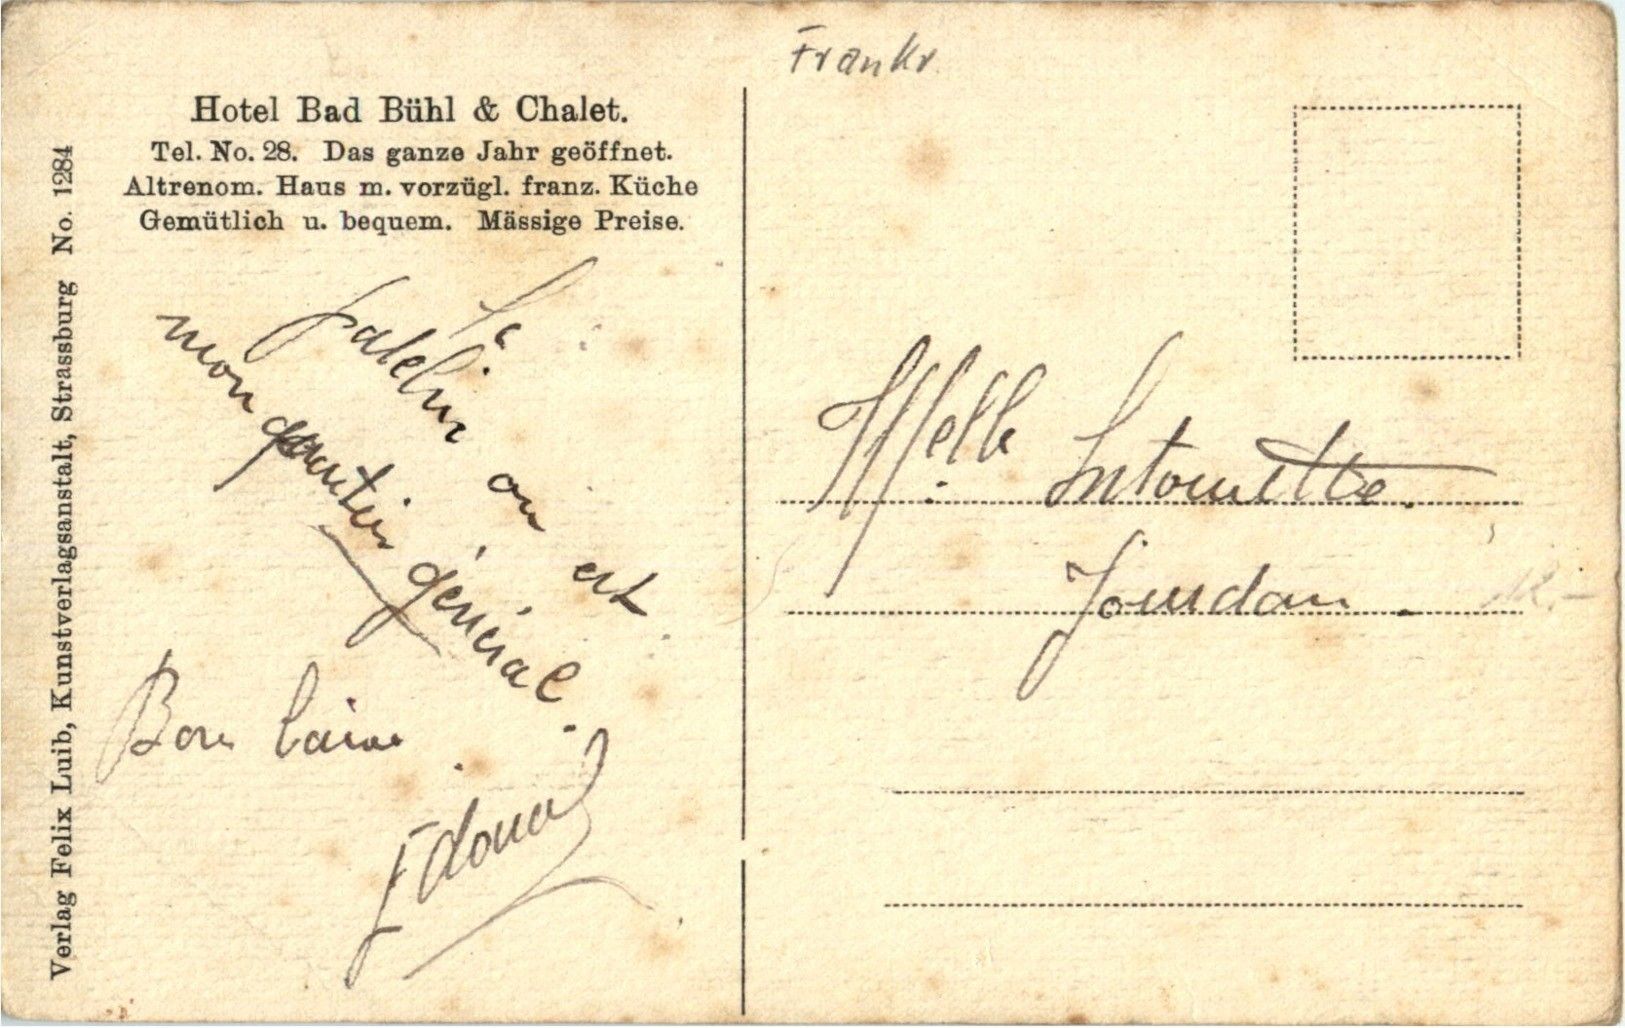 Frankr
Hotel Bad Bühl & Chalet.
Tel. No. 28. Das ganze Jahr geöffnet.
Altrenom. Haus m. vorzügl. franz. Küche
Gemütlich u. bequem. Mässige Preise.
Verlag Felix Luib, Kunstverlagsanstalt, Strassburg No. 1284
ou est
mon quartier général.
Bon
Edouard
Melle Antoinette
Jourdan.